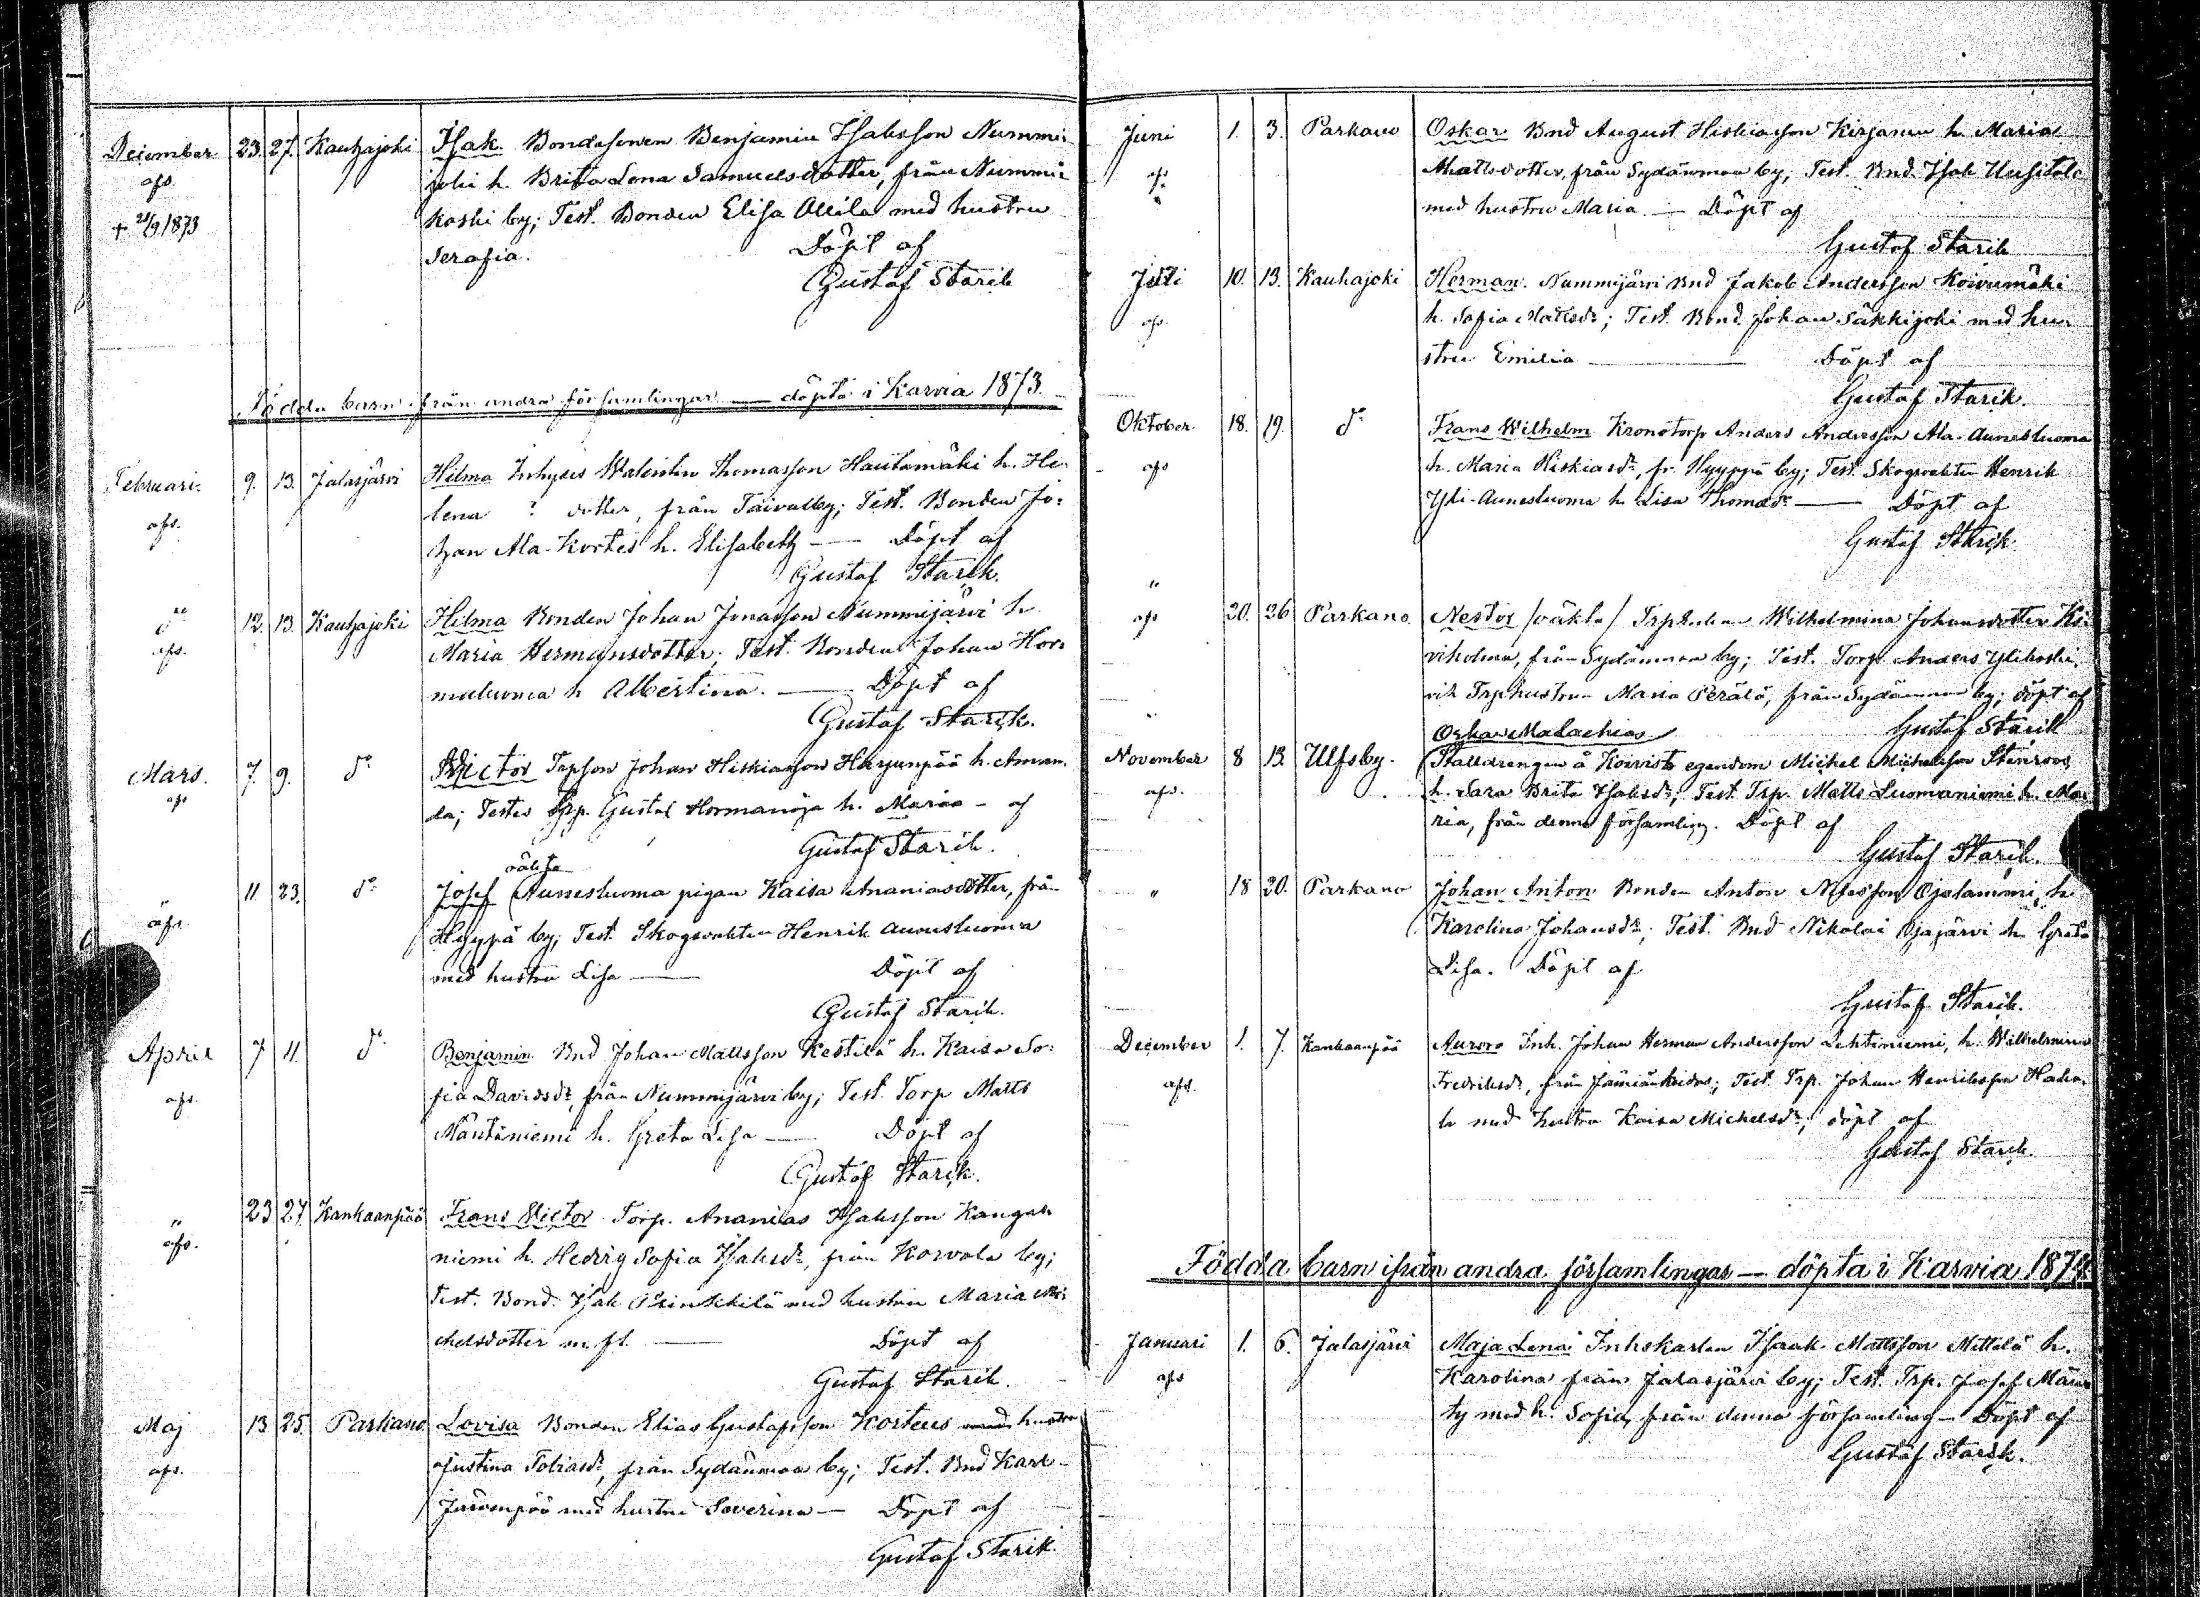 December 23. 27. Kauhajoki Isak Bondesonen Benjamin Isaksson Nummi-
afs. joki h. Brita Lena Samuelsdotter, från Nummi-
+ 21/9 1873 koski by; Test. Bonden Elisa Allila med hustru
Serafia. Döpt af
Gustaf Starck
Födda barn ifrån andra församlingar — döpta i Karvia 1873.
Februari. 9. 13. Jalasjärvi Hilma Inhyses Walentin Thomasson Hautamäki h. He-
afs. lena ? dotter, från Taivalby; Test. Bonden Jo-
han Ala-Kortes h. Elisabeth — Döpt af
Gustaf Starck.
do 12. 13. Kauhajoki Hilma Bonden Johan Jonasson Nummijärvi h.
afs. Maria Hermansdotter; Test. Bonden Johan Hor-
maluoma h Albertina. — Döpt af
Gustaf Starck.
Mars. 7. 9. do Victor Trpson Johan Hiskiasson Harjunpää h. Aman-
afs da; Testes Trp. Gustaf Hormanoja h. Maria - af
Gustaf Starck.
oäkta
11 23. do Josef Aunesluoma pigan Kaisa Ananiasdotter, från
afs. Hyyppä by; Test. Skogsvakten Henrik Aunesluoma
med hustru Lisa — Döpt af
Gustaf Starck.
April 7 11. do Benjamin Bnd Johan Mattsson Kestilä h. Kaisa So-
afs. fia Davidsdr, från Nummijärvi by; Test. Torp Matts
Mäntäniemi h. Greta Lisa — Döpt af
Gustaf Starck.
" 23 27 Kankaanpää Frans Victor Torp. Ananias Isaksson Kangas
afs. niemi h. Hedvig Sofia Isaksdr, från Korvala by;
Test. Bond. Isak med hustru Maria Mi-
chelsdotter m. fl. — Döpt af
Gustaf Starck.
Maj 13 25. Parkano Lovisa Bonden Elias Gustafsson Korteus med hustru
afs. Justina Tobiasdr, från Sydänmaa by; Test. Bnd Karl
Järvenpää med hustru Severina — Döpt af
Gustaf Starck.
Juni 1. 3. Parkano Oskar Bnd August Hiskiasson Kirjanen h. Maria
afs Mattsdotter, från Sydänmaa by; Test. Bnd Isak Uusitalo
med hustru Maria. — Döpt af
Gustaf Starck
Juli 10. 13. Kauhajoki Herman. Nummijärvi Bnd Jakob Andersson Koivumäki
afs. h. Sofia Mattsdr; Test. Bond. Johan Säkkijoki med hu-
stru Emilia — Döpt af
Gustaf Starck.
Oktober 18. 19. do Frans Wilhelm Kronotorp Anders Andersson Ala-Aunesluoma
afs h. Maria Hiskiasdr, fr. Hyyppä by; Test. Skogsvakten Henrik
Yli-Aunesluoma h Lisa Thomasdr — Döpt af
Gustaf Starck
"
afs 20. 26 Parkano Nestor /oäkta/ Wilhelmina Johansdotter Ki-
viholma, från Sydänmaa by; Test. Torp. Anders Ylikoski,
och Trphustrun Maria Perälä, från Sydänmaa by; döpt af
Oskar Malachias Gustaf Starck
November 8 13. Ulfsby. Stalldrengen å Koivisto egendom Michel Michelsson Stenroos
afs. h. Sara Brita Isaksdr; Test. Trp. Matts Luomaniemi h. Ma-
ria, från denna församling. Döpt af
Gustaf Starck.
" 18 20. Parkano Johan Anton Bonden Anton Ojalammi, h.
Karolina Johansdr; Test. Bnd Nikolai Ojajärvi h. Greta
Lisa. Döpt af
Gustaf Starck.
December 1. 7. Kankaanpää Aurora Inh. Johan Herman Andersson Lehtiniemi, h. Wilhelmina
afs. Fredriksdr, från; Test. Trp. Johan Henriksson
med hustru Kaisa Michelsdr; döpt af
Gustaf Starck.
Födda barn ifrån andra församlingar — döpta i Karvia 1874.
Januari 1. 6. Jalasjärvi Maja Lena Inhskarlen Isaak Mattsson Mittilä h.
afs Karolina från Jalasjärvi by; Test. Trp. Josef Män-
ty med h. Sofia, från denna församling — Döpt af
Gustaf Starck.